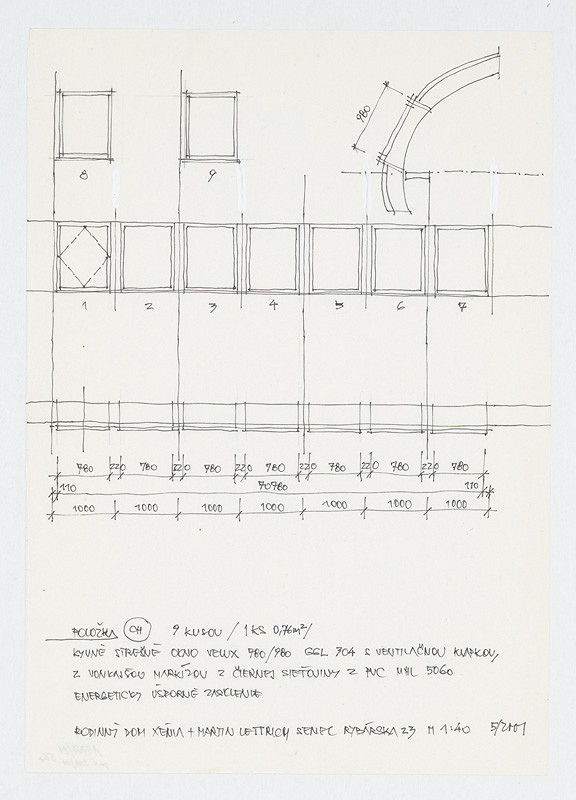 980
8 9
1 2 3 4 5 6 7
780 220 780 220 780 220 780 220 780 220 780 220 780
110 110
1000 1000 1000 1000 1000 1000 1000
POLOŽKA OH 9 KUSOV / 1KS 0,76m²/
KYVNÉ STREŠNÉ OKNO VELUX 780/980 GGL 304 S VENTILAČNOU KLAPKOU,
Z VONKAJŠOU MARKÍZOU Z ČIERNEJ SIEŤOVINY Z PVC MHL 5060
ENERGETICKY ÚSPORNÉ ZASKLENIE
RODINNÝ DOM XÉNIA + MARTIN LETTRICH SENEC RYBÁRSKA 23 M 1:40 5/2001